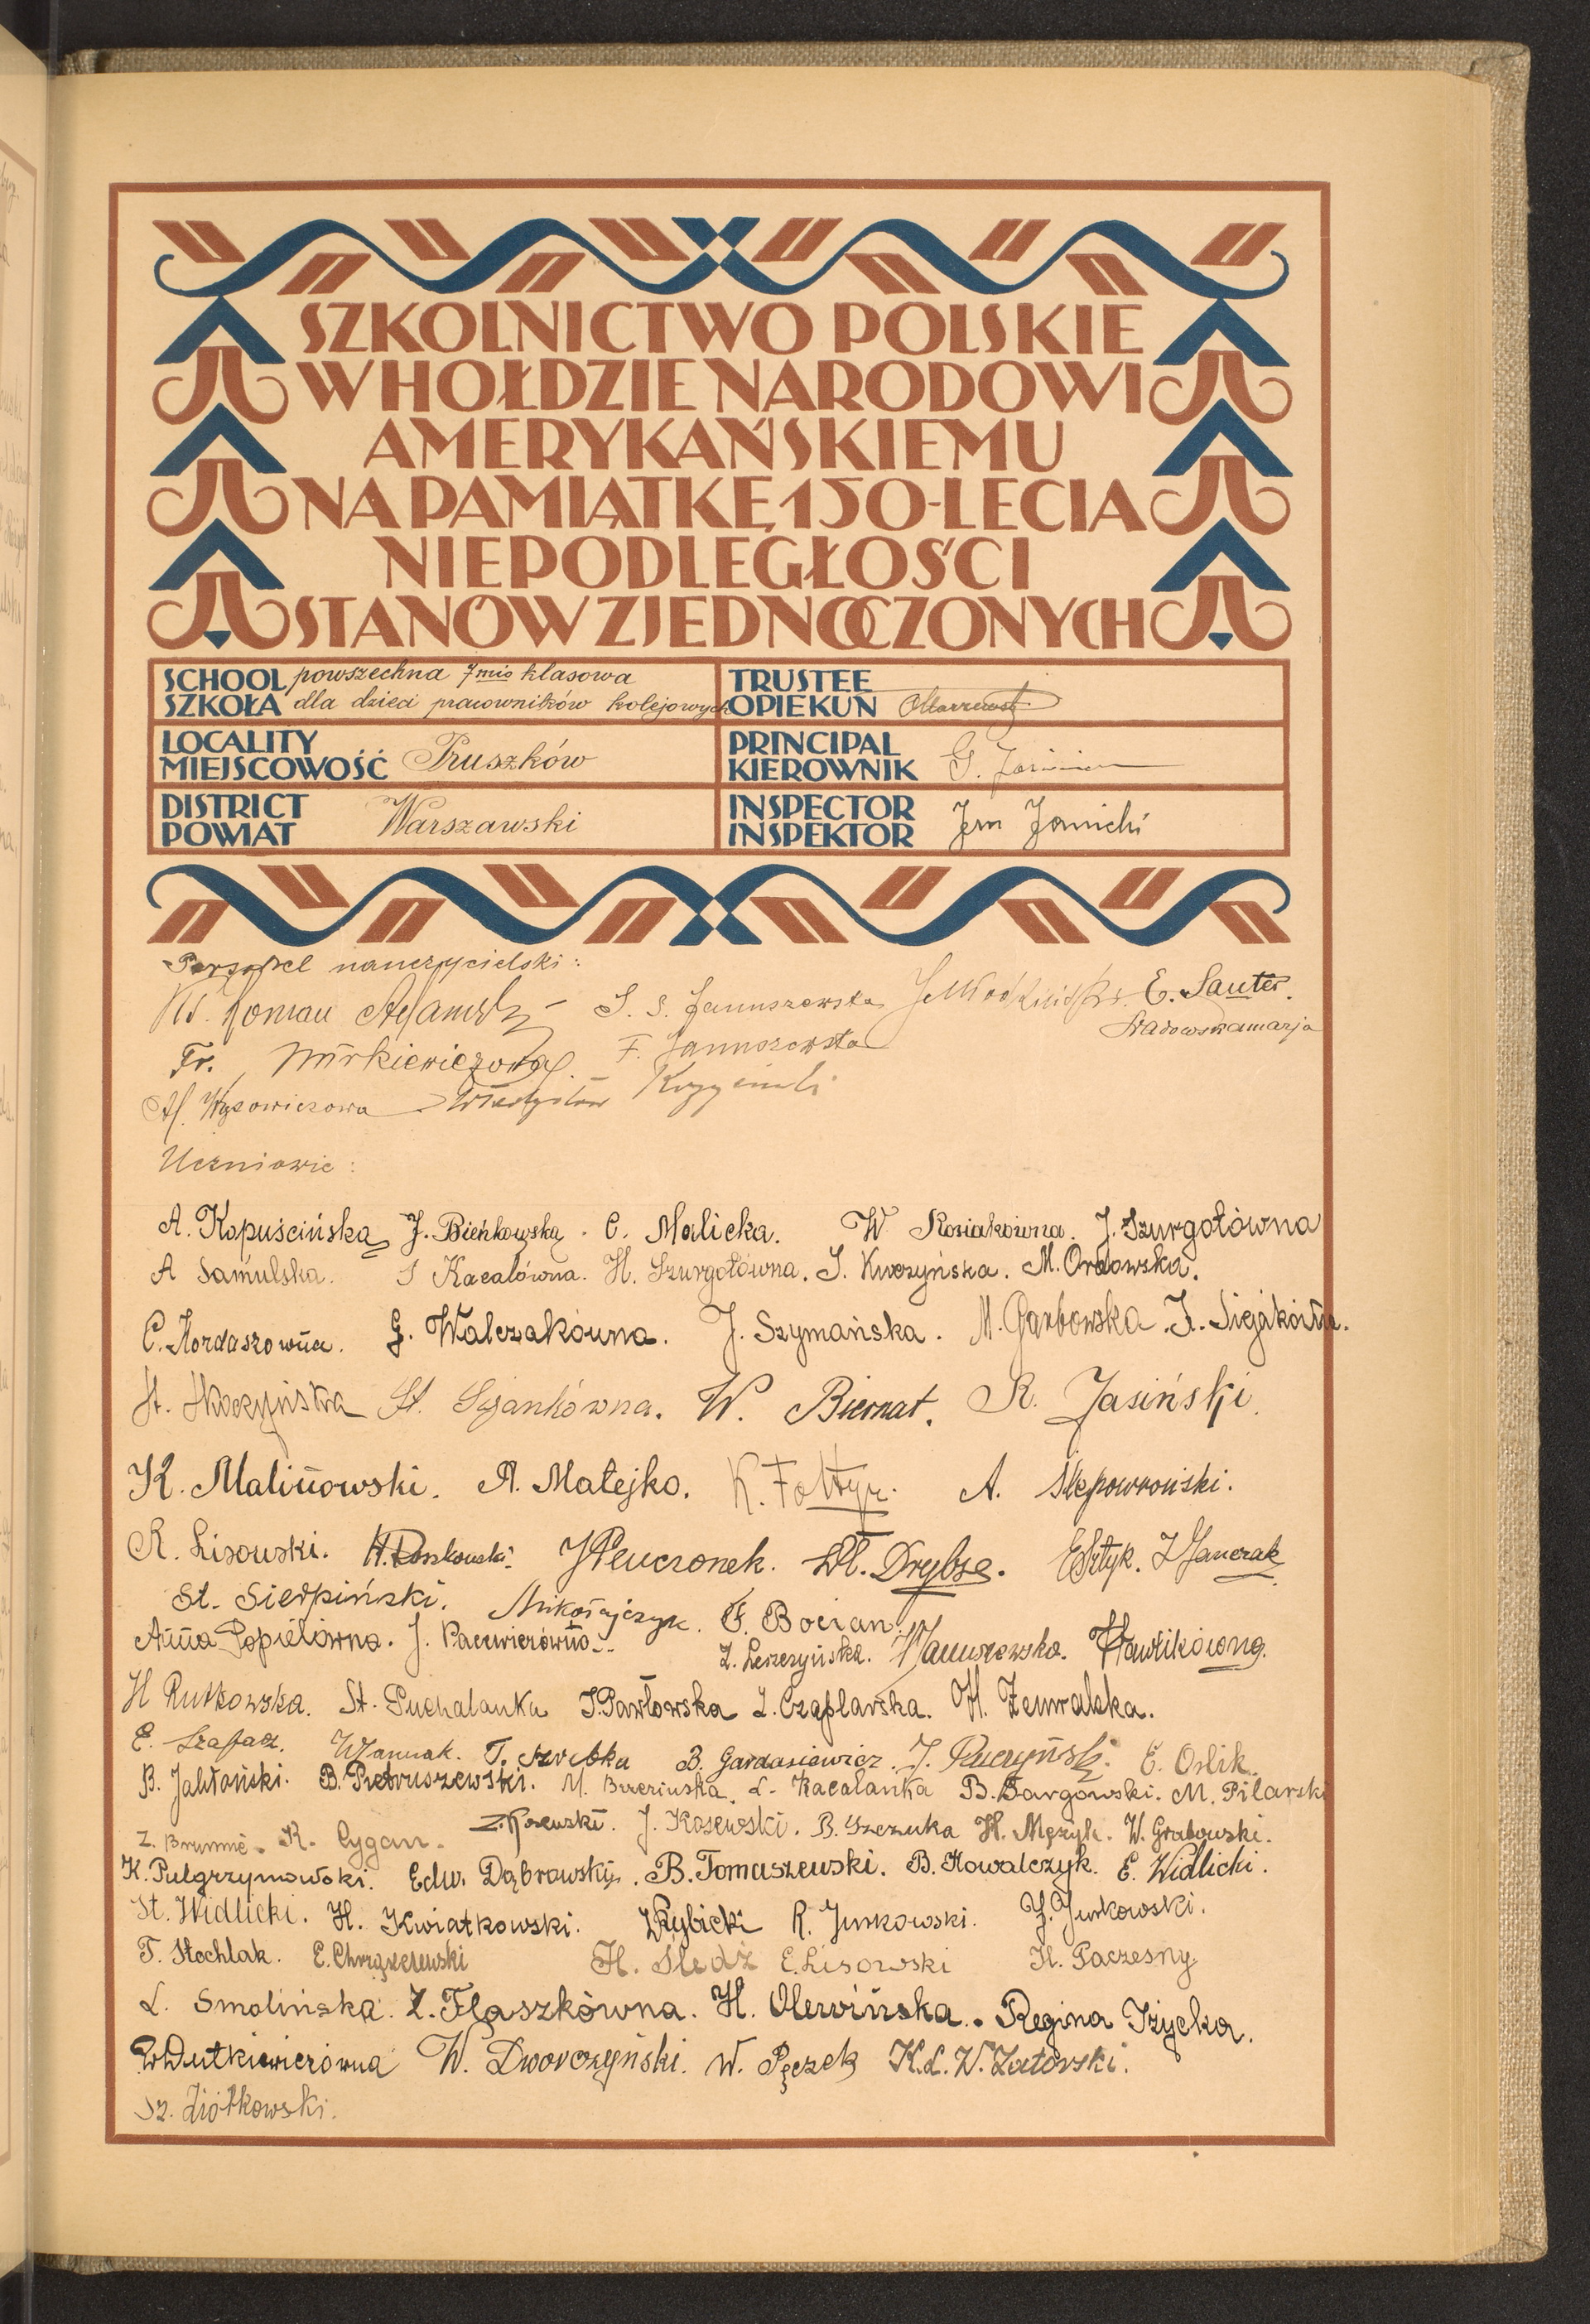 SZKOLNICTWO POLSKIE
W HOŁDZIE NARODOWI
AMERYKAŃSKIEMU
NA PAMIĄTKĘ 150-LECIA
NIEPODLEGŁOŚCI
STANÓW ZJEDNOCZONYCH
SCHOOL powszechna 7mio klasowa
SZKOŁA dla dzieci pracowników kolejowych
TRUSTEE
OPIEKUN
LOCALITY
MIEJSCOWOŚĆ Pruszków
PRINCIPAL
KIEROWNIK G.
DISTRICT
POWIAT Warszawski
INSPECTOR
INSPEKTOR Jan Janicki
Personel nauczycielski:
Ks. Roman S. S. Januszewska E. Sauter.
Sadowska Marja
Fr. Mirkiewiczowa. F. Januszewska
Wąsowiczowa Władysław
Uczniowie:
A. Kopuścińska J. Bieńkowska. C. Malicka. W Rosiakówna. J. Szurgotówna
A Samulska. S Kacalówna. H. Szurgotówna. J. Kurczyńska. M. Ordowska.
C. Kordaszowna. G. Walczakówna. J. Szymańska. M. Garbowska.
St. Skoczyńska St. Sujankówna. W. Biernat. R. Jasiński.
K. Malinowski. A. Matejko. K. Fołtyn. A. Ślepowroński.
R. Lisowski. H. Roszkowski. J Pluczonek. Wł. Drybsz. E Sztyk. Z Janczak
St. Sierpiński. Mikołajczyk. F. Bocian.
Anna Popielówna. J. Pacewiczówna. Z. Leszczyńska. W Januszewska. Hawlikówna.
H Rutkowska. St. Puchalanka J. Pawłowska Z. Czaplarska. H. Żeuwalska.
E. Szafacz. W Jannak. T. Szrubka B. Gardasiewicz. J. Ruczyński. E. Orlik.
B. Jabłoński. B. Pietruszewski. M. Brzezińska. L. Kacalanka B. Bargowski. M. Pilarski
Z. Brumme. R. Cygan. Z. Kosewski. J. Kosewski. B. Szczuka H. Męzyk. W. Grabowski.
K. Pielgrzymowski. Edw. Dąbrowski. B. Tomaszewski. B. Kowalczyk. E. Widlicki.
St. Widlicki. H. Kwiatkowski. Z Rybicki R. Jurkowski. Y. Jurkowski.
T. Stochlak. E. Chrząszczewski H. Śledź E. Lisowski H. Paczesny
L. Smolińska. Z. Flaszkówna. H. Olewińska. Regina Iżycka.
W Dutkiewiczówna W. Dworczyński. W. Pęczek K.L.W. Zatorski.
Sz. Ziółkowski.